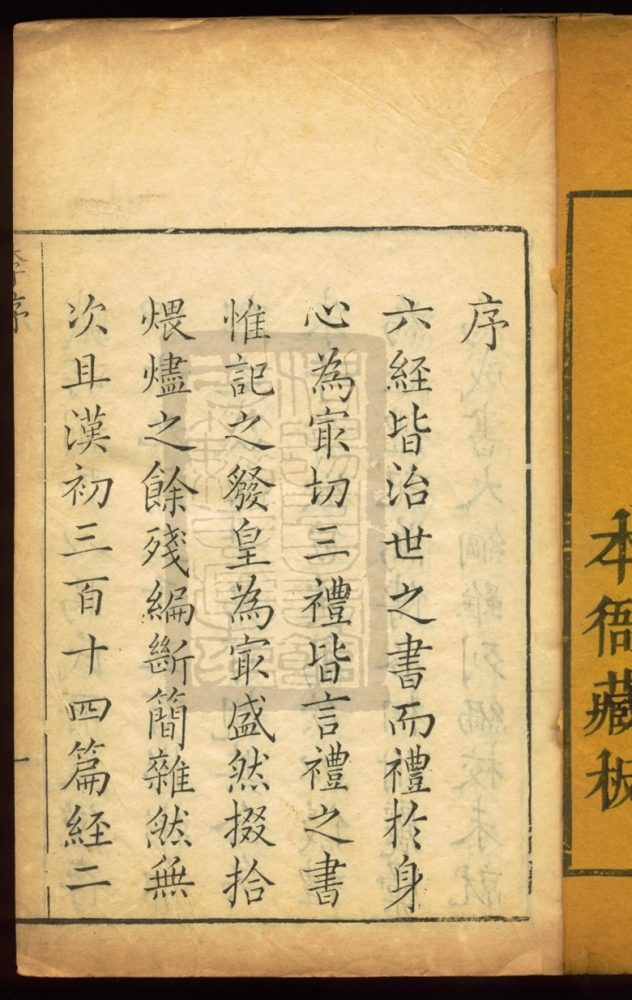 本衙藏板
序
六經皆治世之書而禮於身
心為㝡切三禮皆言禮之書
惟記之發皇為㝡盛然掇拾
煨燼之餘殘編斷簡雜然無
次且漢初三百十四篇經二
序
一